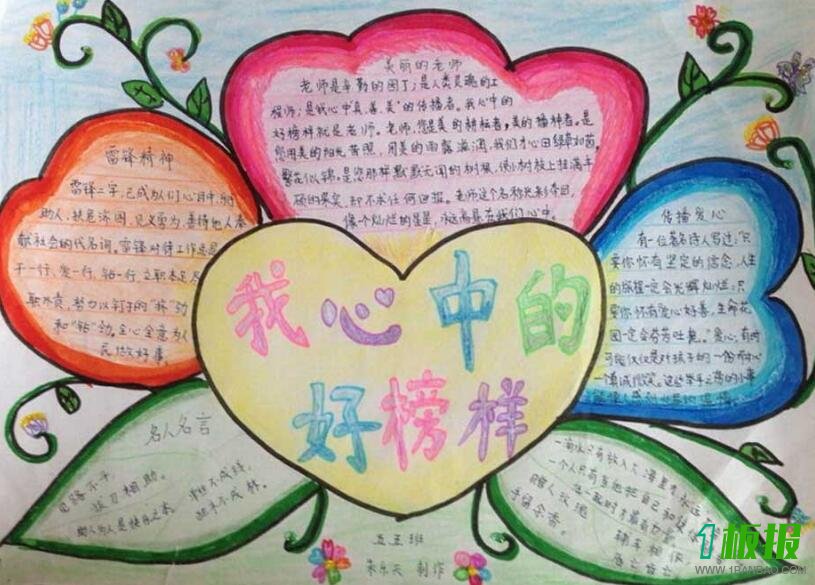 美丽的老师
老师是辛勤的园丁;是人类灵魂的工
程师;是我心中真、善、美的传播者。我心中的
好榜样就是老师。老师,您是美的耕耘者,美的播种者。是
您用美的阳光普照,用美的雨露滋润,我们才心田绿草如茵,
繁花似锦。是您那样默默无闻的树根,使小树枝上挂满丰
硕的果实,却不求任何回报。老师这个名称光彩夺目,
像个灿烂的星星,永远高悬在我们心中。
雷锋精神
雷锋二字,已成为人们心目中,
助人,扶危济困,见义勇为,善待他人奉
献社会的代名词。雷锋对待工作总是
干一行、爱一行、钻一行,立职本足
职小责,努力以钉子的"挤"劲
和"钻"劲。全心全意为人
民做好事。
传播爱心
有一位著名诗人写过:只
要你怀有坚定的信念,人生
的旅程一定会光辉灿烂;只
要你怀有爱心好善,生命花
园一定会芬芳吐艳。"爱心,有时
可能仅仅是对孩子的一份耐心
一情诚微笑。这些举手之劳的小事
我心中的
好榜样
名人名言
见路不平,
拔刀相助。
助人为人是快乐之本。
单丝不成线,
独木不成林。
一滴水只有放入大海里才永远
一个人只有当他把自己和
赠人玫瑰
手留余香。
五五班
朱乐天 制作
1板报
WWW.1BANBAO.COM